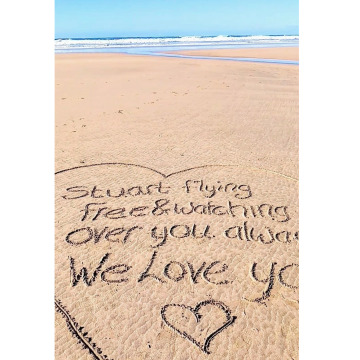 Stuart flying
free & watching
over you alwa
We Love yo